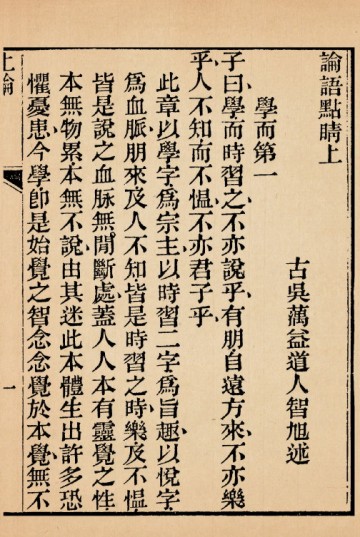 論語點睛上
古吳蕅益道人智旭述
學而第一
子曰學而時習之不亦說乎有朋自遠方來不亦樂
乎人不知而不慍不亦君子乎
此章以學字爲宗主以時習二字爲旨趣以悅字
爲血脈朋來及人不知皆是時習之時樂及不慍
皆是說之血脉無閒斷處蓋人人本有靈覺之性
本無物累本無不說由其迷此本體生出許多恐
懼憂患今學卽是始覺之智念念覺於本覺無不
上論
一